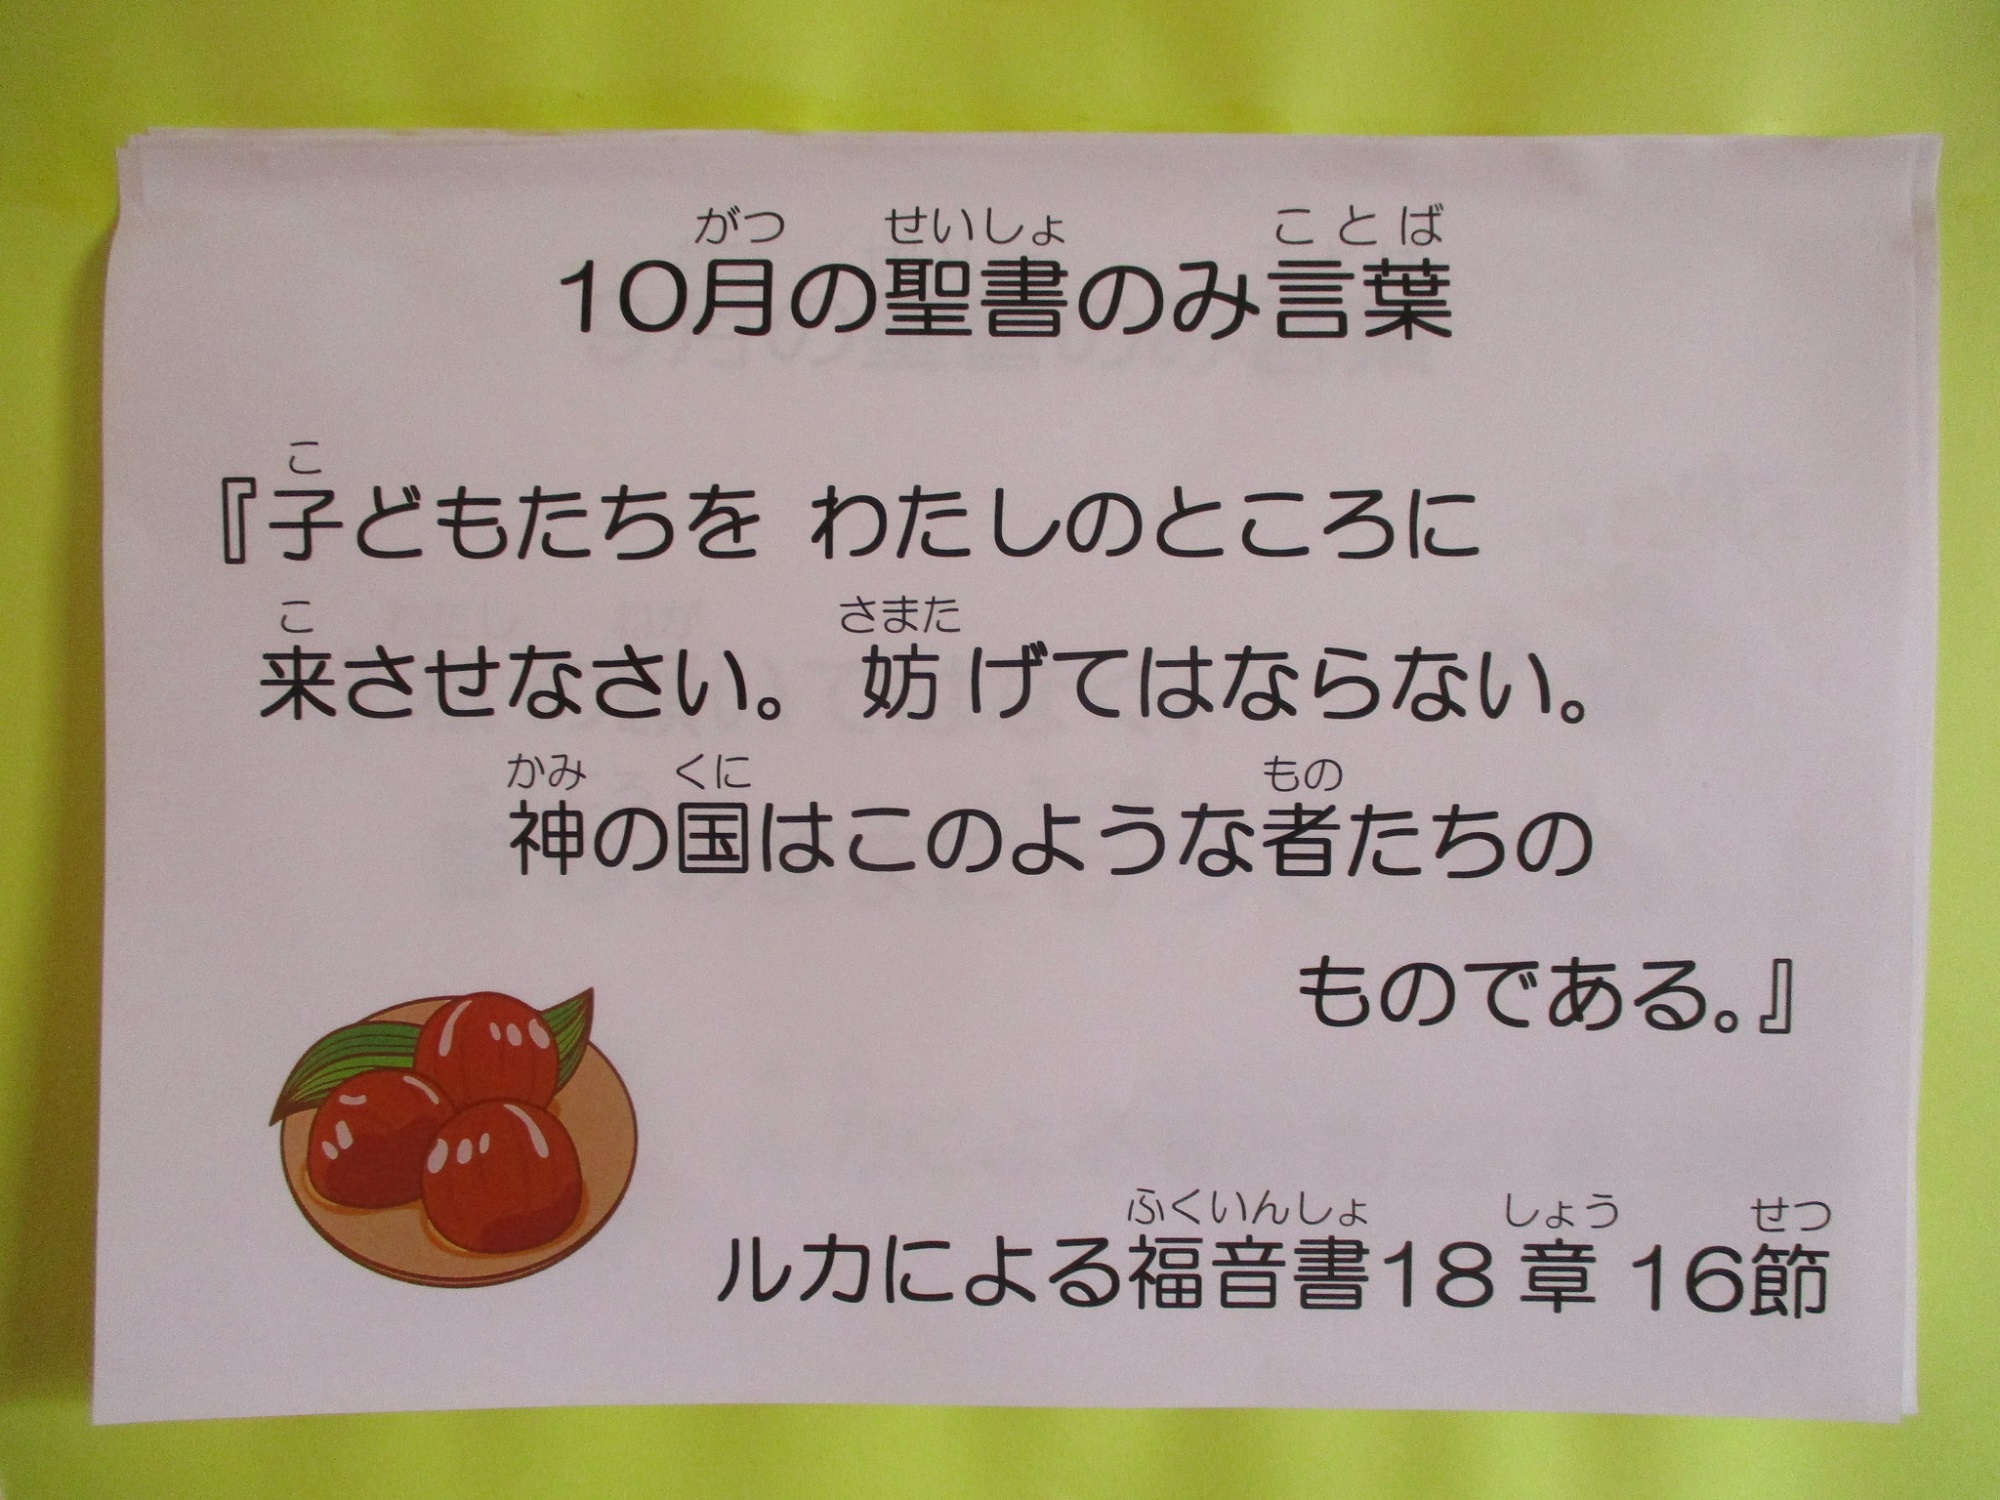 がつ せいしょ ことば
10月の聖書のみ言葉
こ
『子どもたちを わたしのところに
こ さまた
来させなさい。 妨げてはならない。
かみ くに もの
神の国はこのような者たちの
ものである。』
ふくいんしょ しょう せつ
ルカによる福音書18章16節